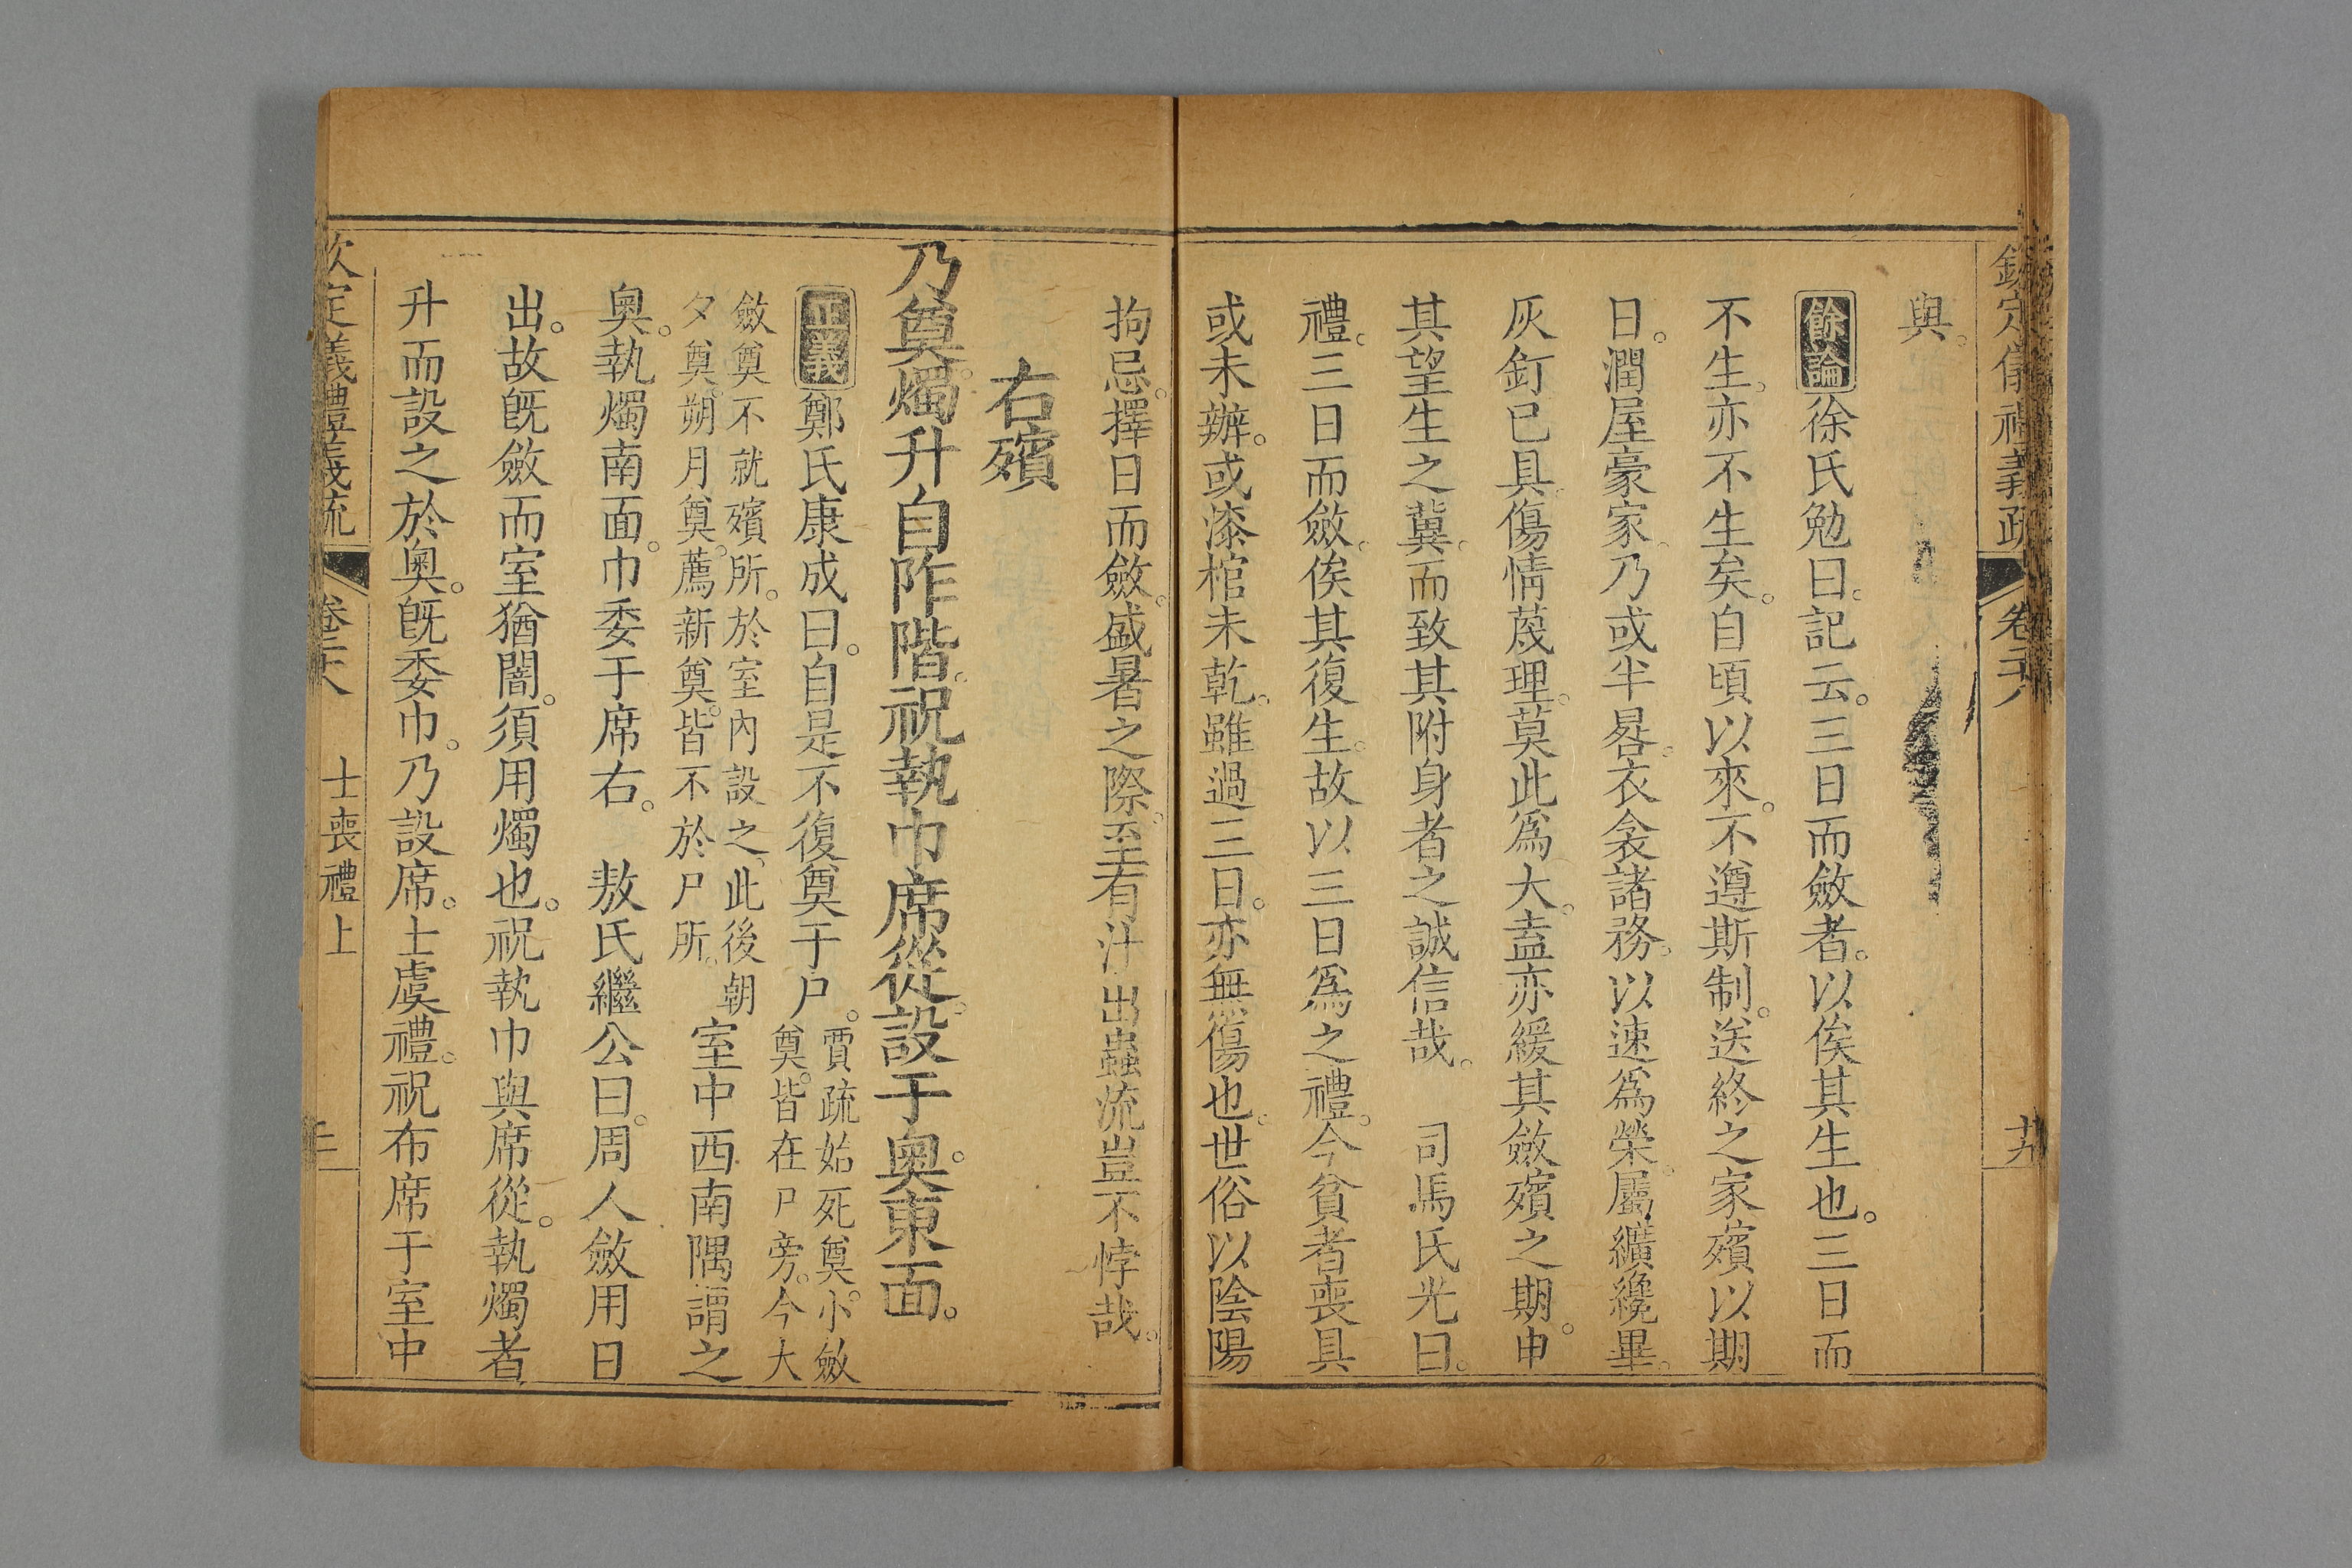 欽定儀禮義疏 卷二十八 十九
與。
餘論 徐氏勉曰。記云。三日而斂者。以俟其生也。三日而
不生。亦不生矣。自頃以來。不遵斯制。送終之家。殯以期
日。潤屋豪家。乃或半晷。衣衾諸務。以速爲榮。屬纊纔畢。
灰釘已具。傷情蔑理。莫此爲大。盍亦緩其斂殯之期。申
其望生之冀。而致其附身者之誠信哉。 司馬氏光曰。
禮。三日而斂。俟其復生。故以三日爲之禮。今貧者喪具
或未辦。或漆棺未乾。雖過三日。亦無傷也。世俗以陰陽
拘忌。擇日而斂。盛暑之際。至有汁出蟲流。豈不悖哉。
右殯
乃奠。燭升自阼階。祝執巾。席從。設于奧。東面。
正義 鄭氏康成曰。自是不復奠于尸。
賈疏始死奠。小斂
奠。皆在尸旁。今大
斂奠不就殯所。於室內設之。此後朝
夕奠。朔月奠。薦新奠。皆不於尸所。
室中西南隅謂之
奧。執燭南面。巾委于席右。 敖氏繼公曰。周人斂用日
出。故旣斂而室猶闇。須用燭也。祝執巾與席從。執燭者
升而設之於奧。旣委巾。乃設席。士虞禮。祝布席于室中
欽定義禮義疏 卷二十八 士喪禮上